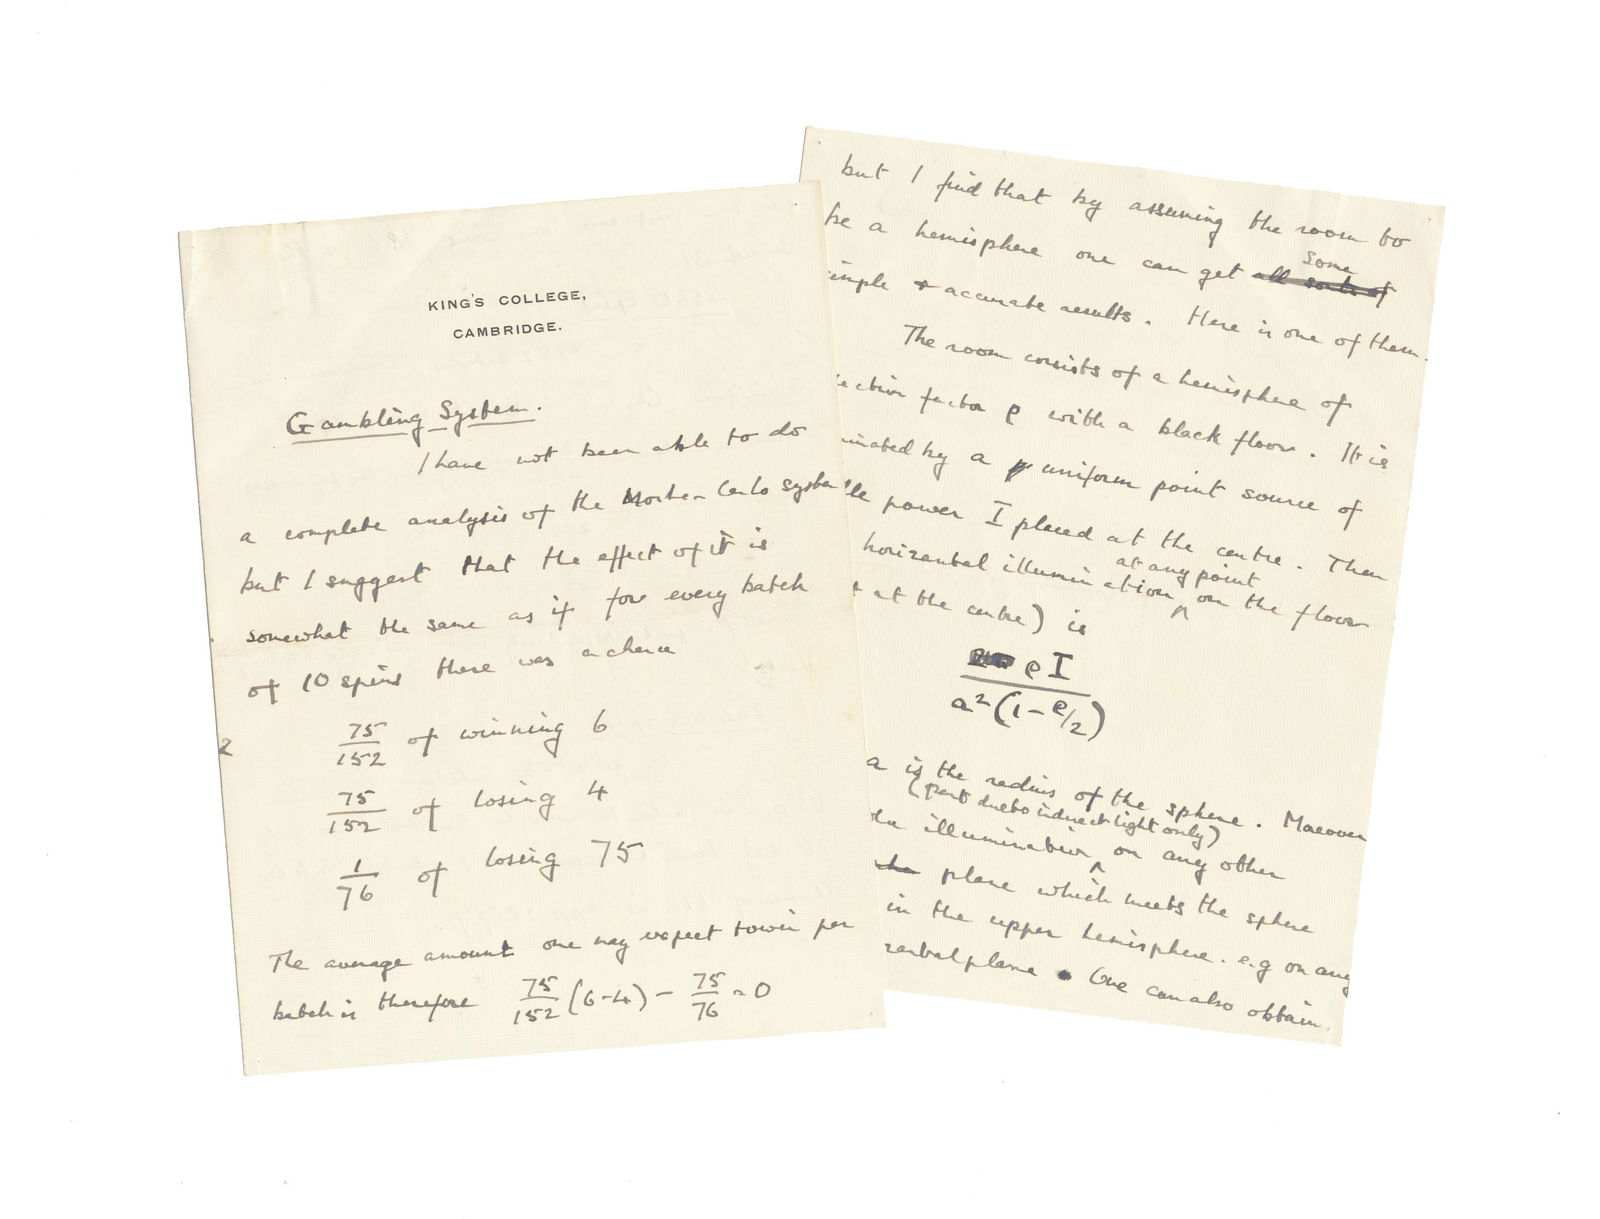 KING'S COLLEGE,
CAMBRIDGE.
Gambling System.
I have not been able to do
a complete analysis of the Monte Carlo system
but I suggest that the effect of it is
somewhat the same as if for every batch
of 10 spins there was a chance
75/152 of winning 6
2
75/152 of losing 4
1/76 of losing 75
The average amount one may expect to win per
batch is therefore 75/152 (6-4) - 75/76 = 0
but I find that by assuming the room to
be a hemisphere one can get all sorts of some
imple & accurate results. Here is one of them.
The room consists of a hemisphere of
ection factor ρ with a black floor. It is
minated by a uniform point source of
le power I placed at the centre. Then
horizontal illumination at any point on the floor
t at the centre) is
ρI
a²(1-ρ/2)
a is the radius of the sphere. Moreover
(part due to indirect light only)
illumination on any other
plane which meets the sphere
in the upper hemisphere. e.g on any
zontal plane. One can also obtain.